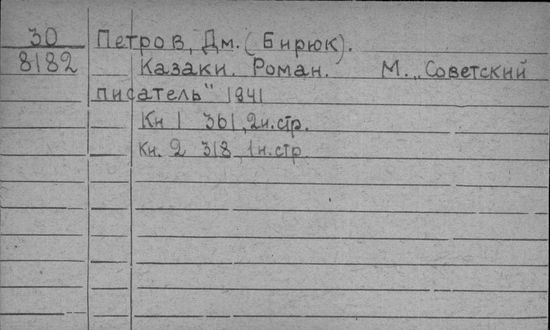 30 Петров, Дм. (Бирюк).
8182 Казаки. Роман. М. „Советский
писатель" 1941
Кн 1 361, 2н.стр.
Кн. 2 318, 1н.стр